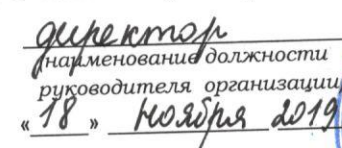 директор
(наименование должности
руководителя организации)
«18» ноября 2019